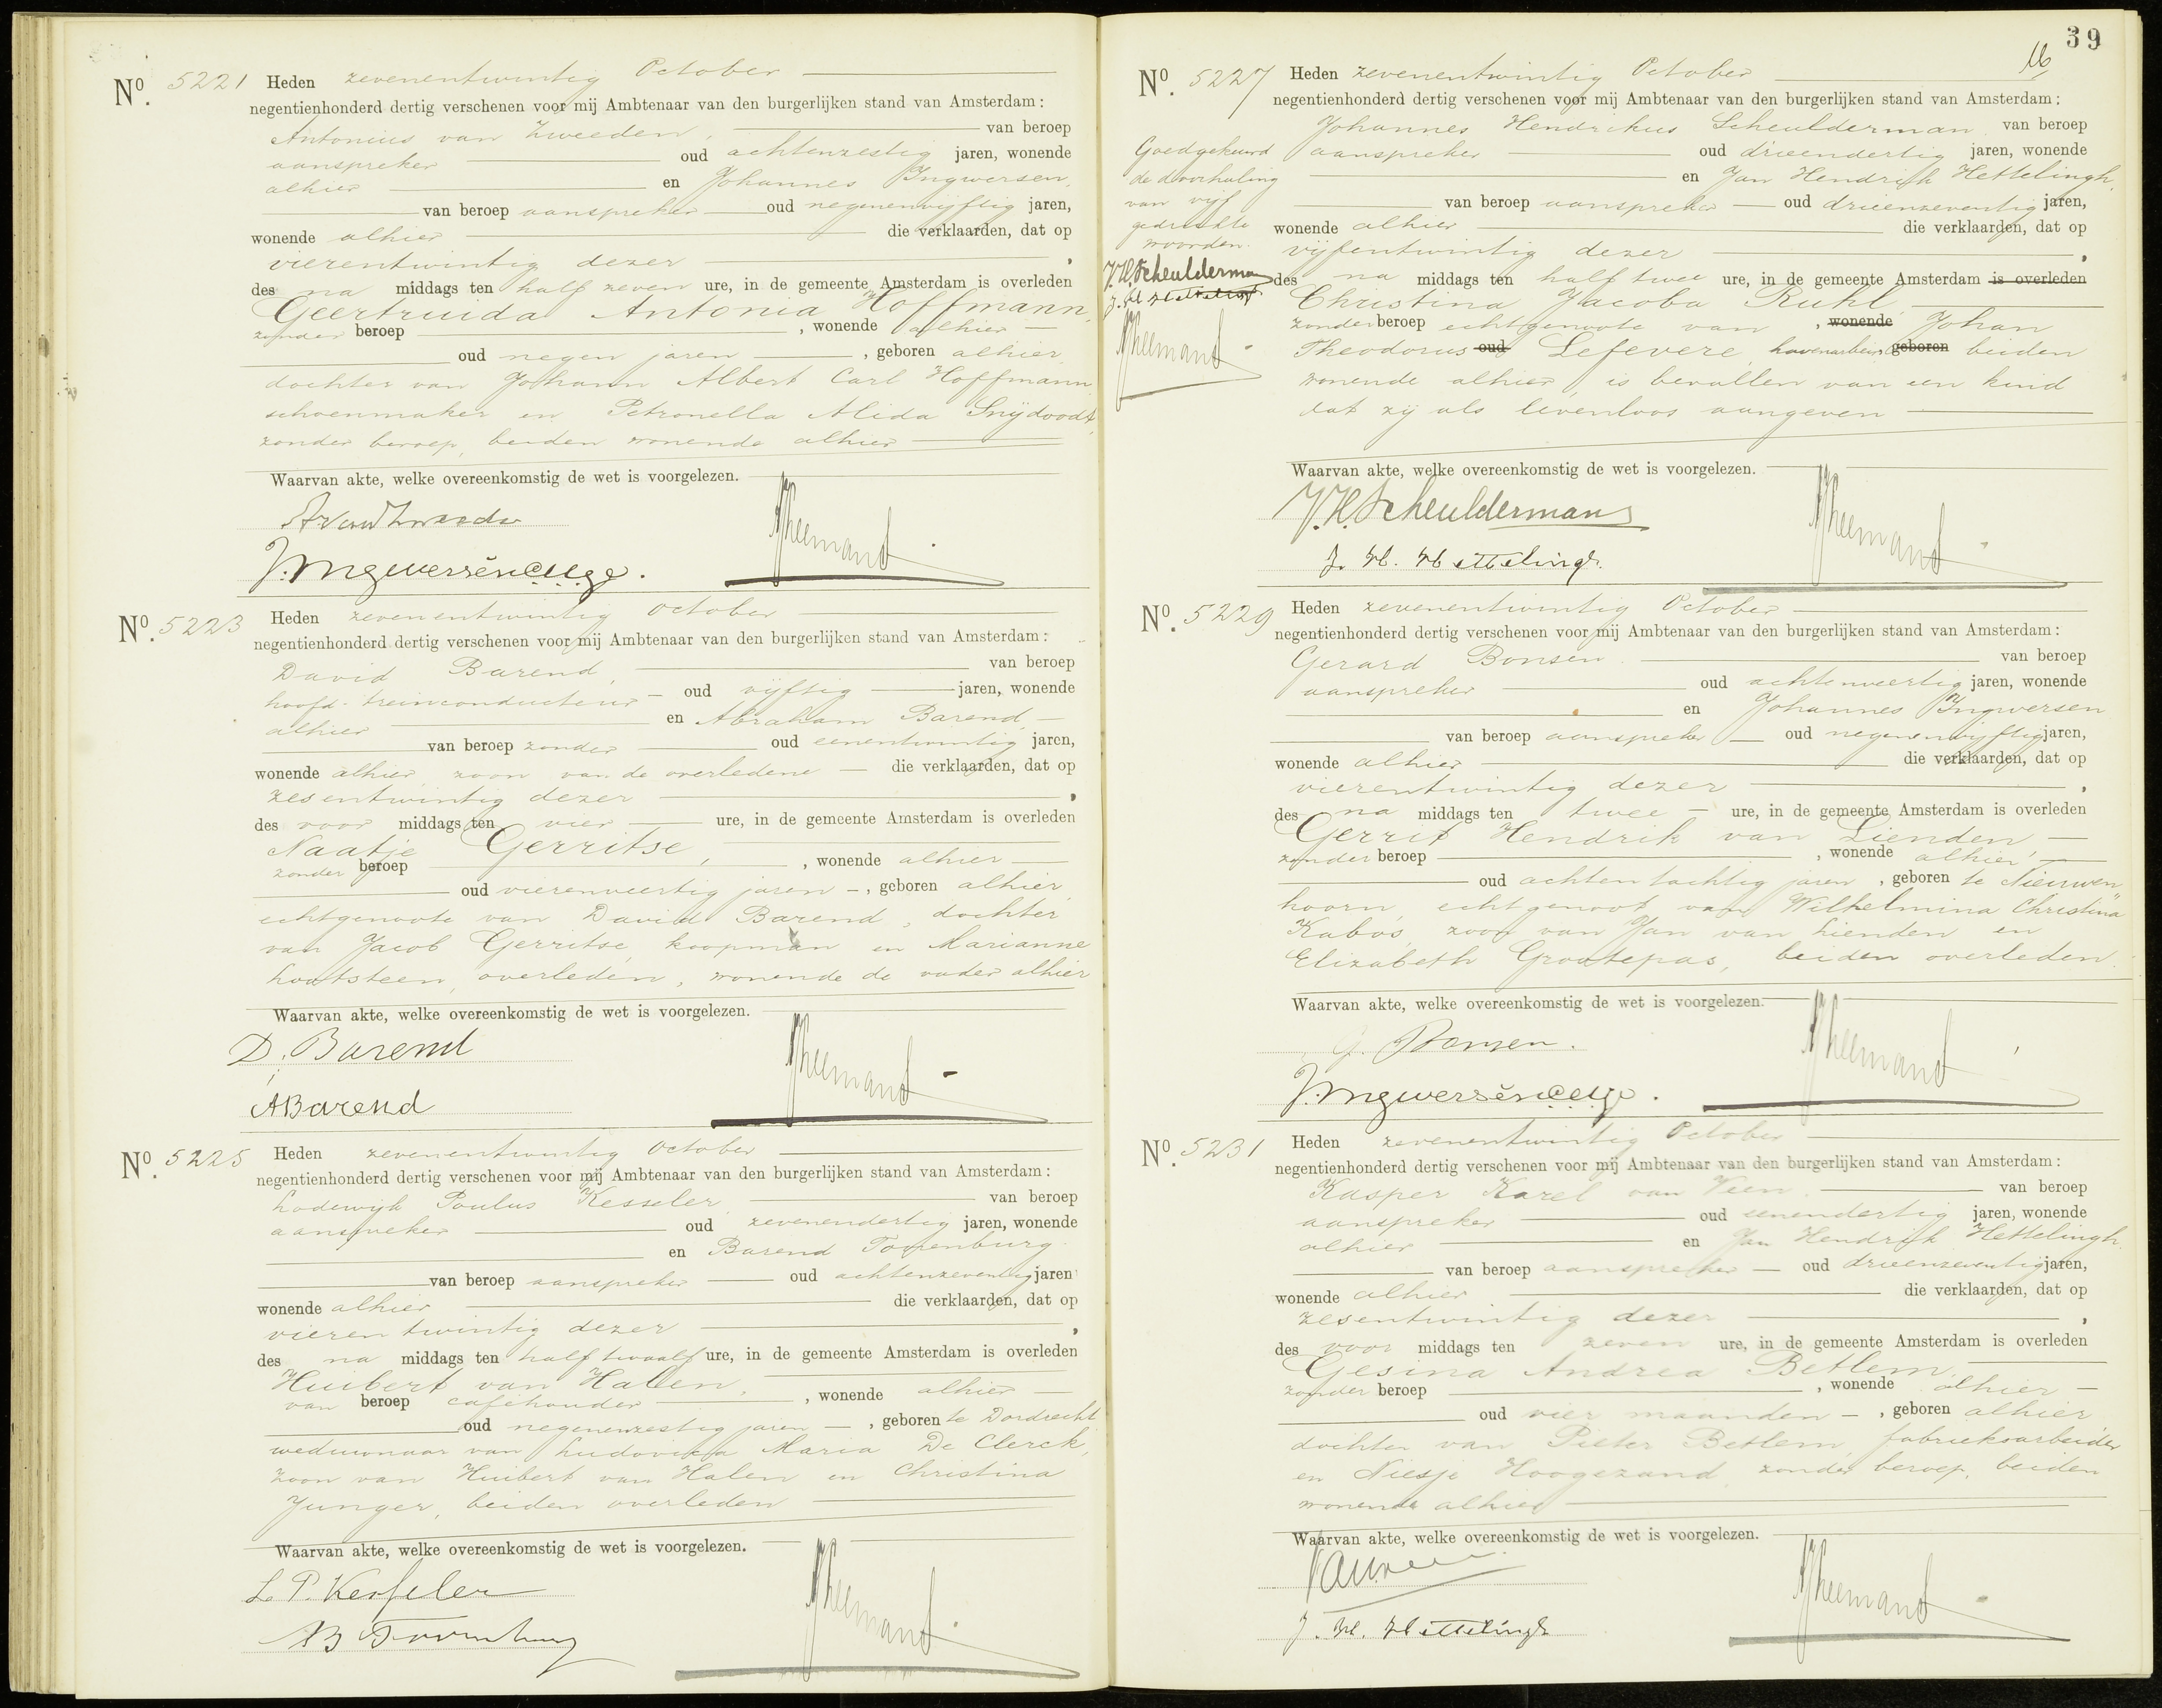 Nº. 5221 Heden zevenentwintig October
negentienhonderd dertig verschenen voor mij Ambtenaar van den burgerlijken stand van Amsterdam:
Antonius van Zweeden, van beroep
aanspreker oud achtenzestig jaren, wonende
alhier en Johannes Ingwersen,
van beroep aanspreker oud negenenvijftig jaren,
wonende alhier die verklaarden, dat op
vierentwintig dezer,
des na middags ten half zeven ure, in de gemeente Amsterdam is overleden
Geertruida Antonia Hoffmann,
zonder beroep, wonende alhier
oud negen jaren, geboren alhier,
dochter van Johann Albert Carl Hoffmann
schoenmaker en Petronella Alida Snijdoodt,
zonder beroep, beiden wonende alhier
Waarvan akte, welke overeenkomstig de wet is voorgelezen.
Nº. 5223 Heden zevenentwintig October
negentienhonderd dertig verschenen voor mij Ambtenaar van den burgerlijken stand van Amsterdam:
David Barend, van beroep
hoofd-treinconducteur oud vijftig jaren, wonende
alhier en Abraham Barend,
van beroep zonder oud eenentwintig jaren,
wonende alhier, zoon van de overledene die verklaarden, dat op
zesentwintig dezer,
des voor middags ten vier ure, in de gemeente Amsterdam is overleden
Naatje Gerritse,
zonder beroep, wonende alhier
oud vierenveertig jaren, geboren alhier,
echtgenoote van David Barend, dochter
van Jacob Gerritse, koopman en Marianne
Lootsteen, overleden, wonende de vader alhier
Waarvan akte, welke overeenkomstig de wet is voorgelezen.
D. Barend
A Barend
Nº. 5225 Heden zevenentwintig October
negentienhonderd dertig verschenen voor mij Ambtenaar van den burgerlijken stand van Amsterdam:
Lodewijk Paulus Kesseler, van beroep
aanspreker oud zevenendertig jaren, wonende
en Barend Torenburg
van beroep aanspreker oud achtenzeventig jaren
wonende alhier die verklaarden, dat op
vierentwintig dezer,
des na middags ten half twaalf ure, in de gemeente Amsterdam is overleden
Huibert van Halen,
van beroep caféhouder, wonende alhier
oud negenenzestig jaren, geboren te Dordrecht
weduwnaar van Ludovica Maria De Clerck,
zoon van Huibert van Halen en Christina
Junger, beiden overleden
Waarvan akte, welke overeenkomstig de wet is voorgelezen.
L. P. Kesseler
39
Nº. 5227 Heden zevenentwintig October
negentienhonderd dertig verschenen voor mij Ambtenaar van den burgerlijken stand van Amsterdam:
Johannes Hendrikus Scheulderman van beroep
aanspreker oud drieendertig jaren, wonende
en Jan Hendrik Hettelingh,
van beroep aanspreker oud drieenzeventig jaren,
wonende alhier die verklaarden, dat op
vijfentwintig dezer,
des na middags ten half twee ure, in de gemeente Amsterdam is overleden
Christina Jacoba Ruhl
zonder beroep echtgenoote van, wonende Johan
Theodorus oud Lefevere, havenarbeider geboren beiden
wonende alhier is bevallen van een kind
dat zij als levenloos aangeven
Goedgekeurd
de doorhaling
van vijf
gedrukte
woorden.
J.H. Scheulderman
Waarvan akte, welke overeenkomstig de wet is voorgelezen.
J.H. Scheulderman
J. H. Hettelingh
Nº. 5229 Heden zevenentwintig October
negentienhonderd dertig verschenen voor mij Ambtenaar van den burgerlijken stand van Amsterdam:
Gerard Bonsen van beroep
aanspreker oud achtenveertig jaren, wonende
en Johannes Ingwersen
van beroep aanspreker oud negenenvijftig jaren,
wonende alhier die verklaarden, dat op
vierentwintig dezer,
des na middags ten twee ure, in de gemeente Amsterdam is overleden
Gerrit Hendrik van Lienden
zonder beroep, wonende alhier,
oud achtentachtig jaren, geboren te Nieuwen
hoorn, echtgenoot van Wilhelmina Christina
Kabos, zoon van Jan van Lienden en
Elizabeth Grootepas, beiden overleden.
Waarvan akte, welke overeenkomstig de wet is voorgelezen.
G. Bonsen.
Nº. 5231 Heden zevenentwintig October
negentienhonderd dertig verschenen voor mij Ambtenaar van den burgerlijken stand van Amsterdam:
Kasper Karel van Veen, van beroep
aanspreker oud eenendertig jaren, wonende
alhier en Jan Hendrik Hettelingh
van beroep aanspreker oud drieenzeventig jaren,
wonende alhier die verklaarden, dat op
zesentwintig dezer,
des voor middags ten zeven ure, in de gemeente Amsterdam is overleden
Gesina Andrea Betlem,
zonder beroep, wonende alhier
oud vier maanden, geboren alhier
dochter van Pieter Betlem, fabrieksarbeider
en Niesje Hoogezand, zonder beroep, beiden
wonende alhier
Waarvan akte, welke overeenkomstig de wet is voorgelezen.
J. H. Hettelingh